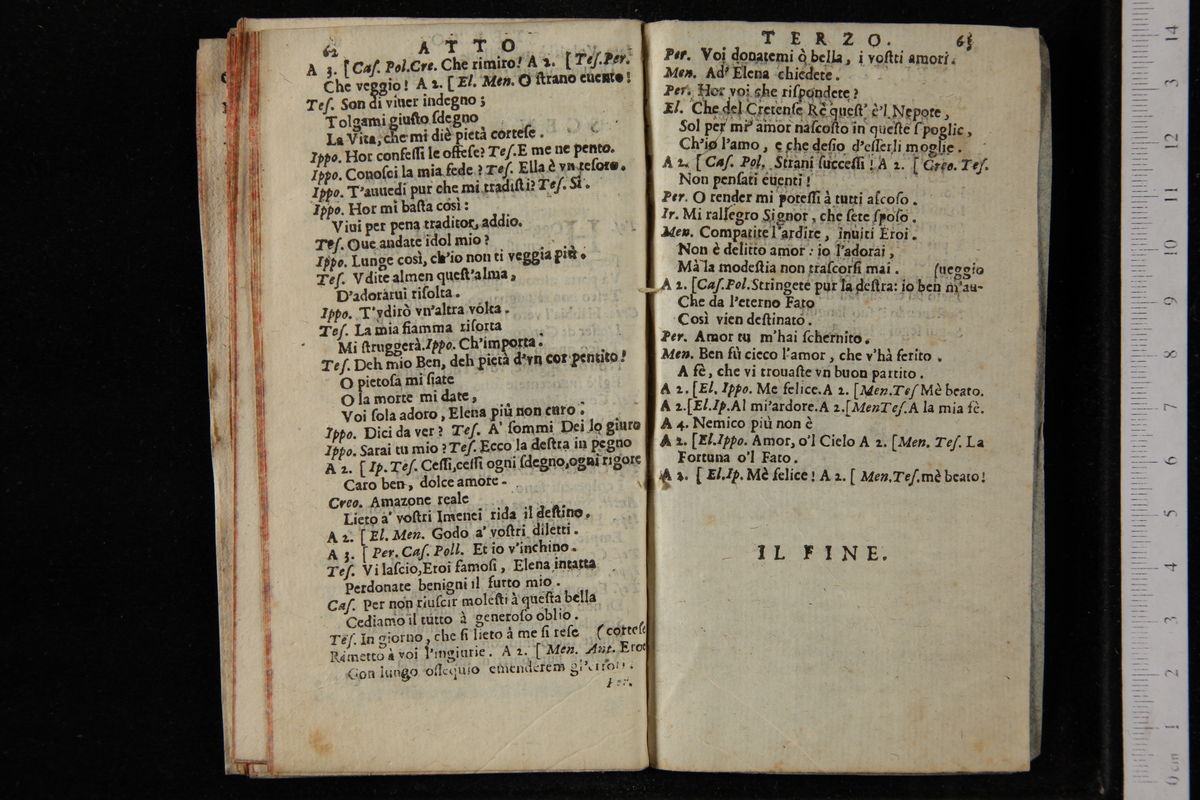 62 ATTO
A 3. [Caſ. Pol. Cre. Che rimiro! A 2. [Teſ. Per.
Che veggio! A 2. [El. Men. O ſtrano euento!
Teſ. Son di viuer indegno;
Tolgami giuſto ſdegno
La Vita, che mi diè pietà corteſe.
Ippo. Hor confeſſi le offeſe? Teſ. E me ne pento.
Ippo. Conoſci la mia fede? Teſ. Ella è vn teſoro.
Ippo. T'auuedi pur che mi tradiſti? Teſ. Sì.
Ippo. Hor mi baſta così:
Viui per pena traditor, addio.
Teſ. Oue andate idol mio?
Ippo. Lunge così, ch'io non ti veggia più.
Teſ. Vdite almen queſt'alma,
D'adorarui riſolta.
Ippo. T'vdirò vn'altra volta.
Teſ. La mia fiamma riſorta
Mi ſtruggerà. Ippo. Ch'importa.
Teſ. Deh mio Ben, deh pietà d'vn cor pentito!
O pietoſa mi ſiate
O la morte mi date,
Voi ſola adoro, Elena più non curo.
Ippo. Dici da ver? Teſ. A' ſommi Dei lo giuro
Ippo. Sarai tu mio? Teſ. Ecco la deſtra in pegno
A 2. [Ip. Teſ. Ceſſi, ceſſi ogni ſdegno, ogni rigore
Caro ben, dolce amore.
Creo. Amazone reale
Lieto a' voſtri Imenei rida il deſtino.
A 2. [El. Men. Godo a' voſtri diletti.
A 3. [Per. Caſ. Poll. Et io v'inchino.
Teſ. Vi laſcio, Eroi famoſi, Elena intatta
Perdonate benigni il furto mio.
Caſ. Per non riuſcir moleſti à queſta bella
Cediamo il tutto à generoſo oblio.
Teſ. In giorno, che ſi lieto à me ſi reſe (corteſe
Rimetto à voi l'ingiurie. A 2. [Men. Ant. Eroe
Con lungo oſſequio emenderem
Per.
TERZO. 63
Per. Voi donatemi ò bella, i voſtri amori.
Men. Ad' Elena chiedete.
Per. Hor voi che riſpondete?
El. Che del Cretenſe Rè queſt' è'l Nepote,
Sol per mi' amor naſcoſto in queſte ſpoglie,
Ch'io l'amo, e che deſio d'eſſerli moglie.
A 2. [Caſ. Pol. Strani ſucceſſi! A 2. [Creo. Teſ.
Non penſati euenti!
Per. O render mi poteſſi à tutti aſcoſo.
Ir. Mi rallegro Signor, che ſete ſpoſo.
Men. Compatite l'ardire, inuiti Eroi.
Non è delitto amor: io l'adorai,
Mà la modeſtia non traſcorſi mai. (ueggio
A 2. [Caſ. Pol. Stringete pur la deſtra: io ben m'au-
Che da l'eterno Fato
Così vien deſtinato.
Per. Amor tu m'hai ſchernito.
Men. Ben fù cieco l'amor, che v'hà ferito.
A fè, che vi trouaſte vn buon partito.
A 2. [El. Ippo. Me felice. A 2. [Men. Teſ Mè beato.
A 2. [El. Ip. Al mi'ardore. A 2. [Men Teſ. A la mia fè.
A 4. Nemico più non è
A 2. [El. Ippo. Amor, o'l Cielo A 2. [Men. Teſ. La
Fortuna o'l Fato.
A 2. [El. Ip. Mè felice! A 2. [Men. Teſ. mè beato!
IL FINE.